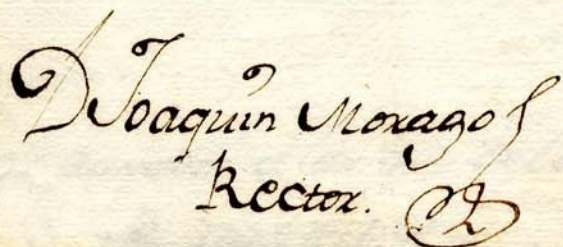 D Joaquin Moragos
Rector.